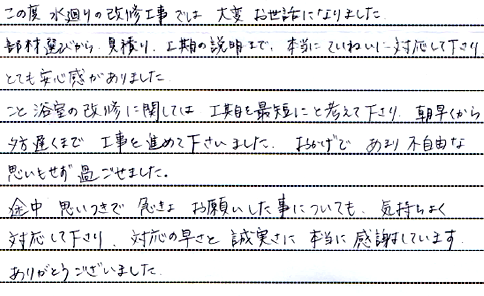 この度 水廻りの改修工事では 大変 お世話になりました
部材選びから、見積り、工期の説明まで、本当にていねいに対応して下さり
とても安心感がありました
こと 浴室の改修に関しては 工期を最短にと考えて下さり、朝早くから
夕方遅くまで 工事を進めて下さいました。おかげで あまり不自由な
思いもせず 過ごせました。
途中 思いつきで 急きょ お願いした事についても、気持ちよく
対応して下さり、対応の早さと 誠実さに 本当に 感謝しています
ありがとうございました